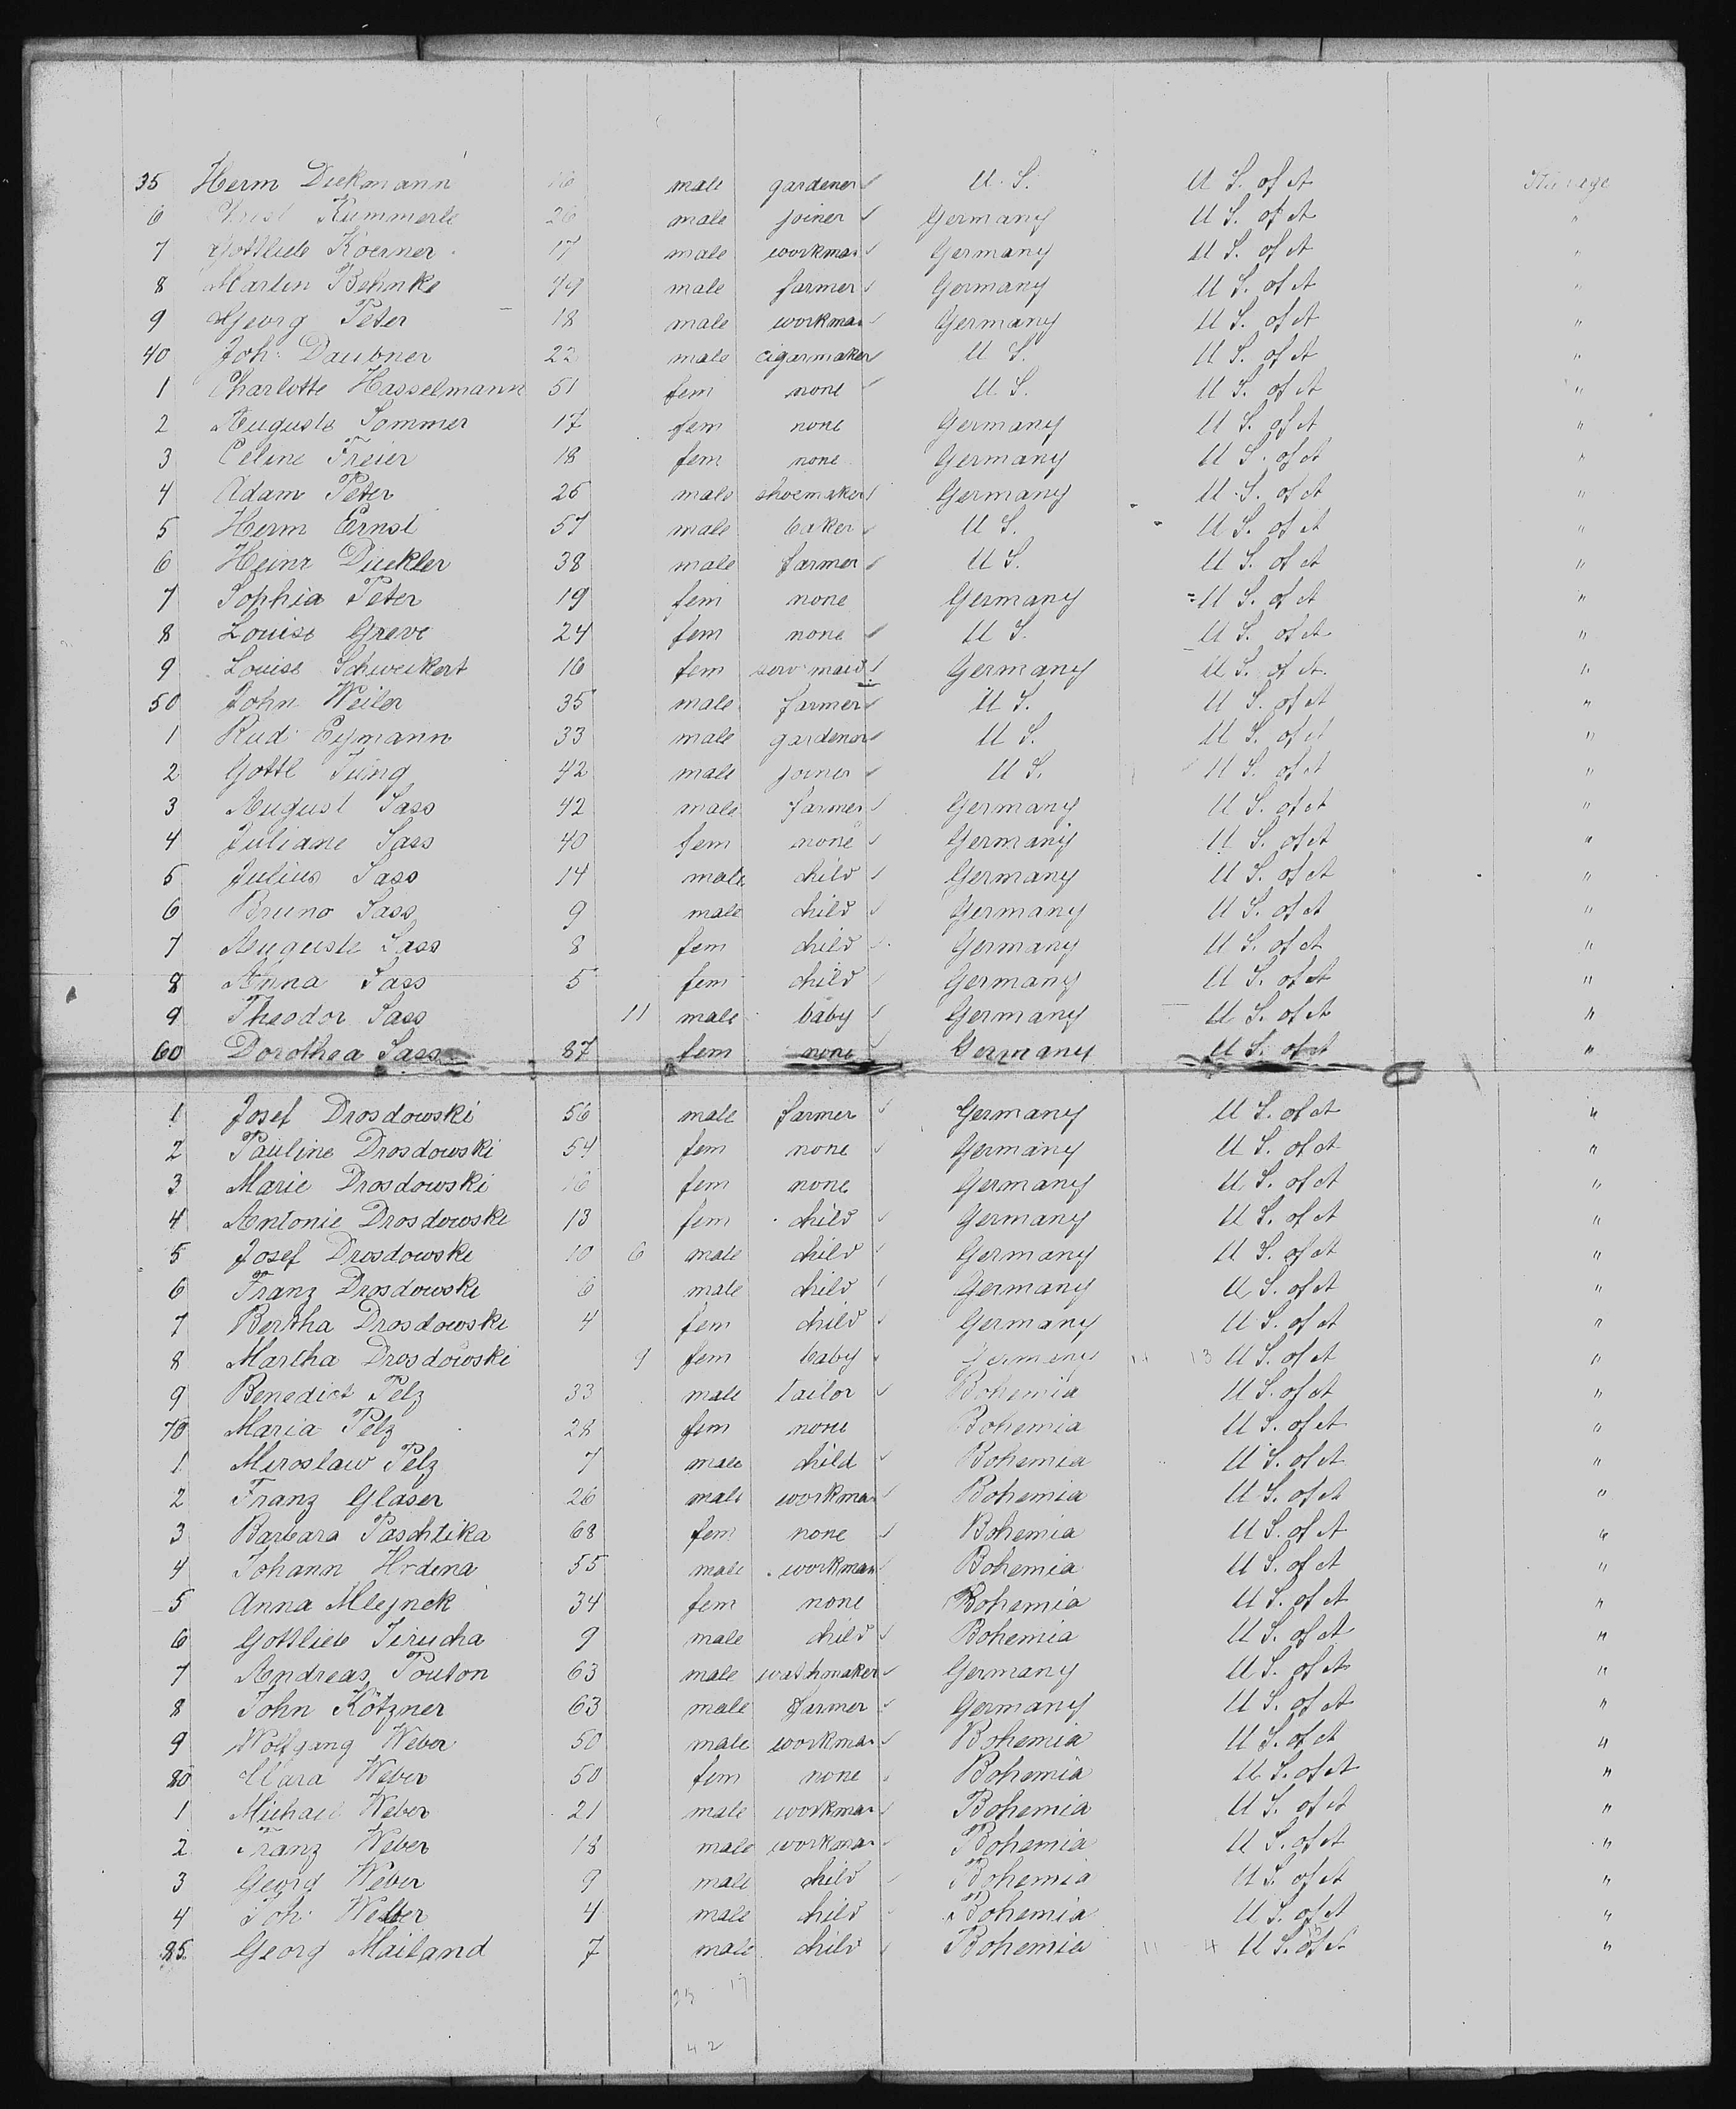 35 Herm Diekmann male gardener U. S. U S. of A Steerage
6 Christ Kummerle 26 male joiner Germany U S. of A "
7 Gottlieb Koerner 17 male workman Germany U S. of A "
8 Martin Behnke 49 male farmer Germany U S. of A "
9 Georg Peter 18 male workman Germany U S. of A "
40 Joh. Daubner 22 male cigarmaker U S. U S. of A "
1 Charlotte Hasselmann 51 fem none U. S. U S. of A "
2 Auguste Sommer 17 fem none Germany U S. of A "
3 Celine Freier 18 fem none Germany U S. of A "
4 Adam Peter 26 male shoemaker Germany U. S. of A "
5 Herm Ernst 57 male baker U S. U S. of A "
6 Heinr Dückler 38 male farmer U S. U S. of A "
7 Sophia Peter 19 fem none Germany U S. of A "
8 Louise Greve 24 fem none U S. U S. of A "
9 Louise Schweikert 16 fem serv maid Germany U S. of A. "
50 John Weiler 35 male farmer U S. U S. of A "
1 Rud. Eymann 33 male gardener U S. U S. of A "
2 Gottl Jung 42 male joiner U S. U S. of A "
3 August Sass 42 male farmer Germany U S. of A "
4 Juliane Sass 40 fem none Germany U S. of A "
5 Julius Sass 14 male child Germany U S. of A "
6 Bruno Sass 9 male child Germany U S. of A "
7 Auguste Sass 8 fem child Germany U S. of A "
8 Anna Sass 5 fem child Germany U S. of A "
9 Theodor Sass 11 male baby Germany U S. of A "
60 Dorothea Sass 87 fem none Germany U S. of A "
1 Josef Drosdowski 56 male farmer Germany U S. of A "
2 Pauline Drosdowski 54 fem none Germany U S. of A "
3 Marie Drosdowski 16 fem none Germany U S. of A "
4 Antonie Drosdowski 13 fem child Germany U S. of A "
5 Josef Drosdowski 10 6 male child Germany U S. of A "
6 Franz Drosdowski 6 male child Germany U S. of A "
7 Bertha Drosdowski 4 fem child Germany U S. of A "
8 Martha Drosdowski 9 fem baby Germany 13 U S. of A "
9 Benedict Pelz 33 male tailor Bohemia U S. of A "
70 Maria Pelz 28 fem none Bohemia U S. of A "
1 Miroslaw Pelz 7 male child Bohemia U S. of A "
2 Franz Glaser 26 male workman Bohemia U S. of A "
3 Barbara Paschtika 68 fem none Bohemia U S. of A "
4 Johann Hrdena 55 male workman Bohemia U S. of A "
5 Anna Mlejnek 34 fem none Bohemia U S. of A "
6 Gottlieb Jirucha 9 male child Bohemia U S. of A "
7 Andreas Pouton 63 male wathmaker Germany U S. of A "
8 John Kötzner 63 male farmer Germany U S. of A "
9 Wolfgang Weber 50 male workman Bohemia U S. of A "
80 Clara Weber 50 fem none Bohemia U S. of A "
1 Michael Weber 21 male workman Bohemia U S. of A "
2 Franz Weber 18 male workman Bohemia U S. of A "
3 Georg Weber 9 male child Bohemia U S. of A "
4 Joh. Weber 4 male child Bohemia U S. of A "
85 Georg Mailand 7 male child Bohemia 11 4 U S. of A "
25 17
42